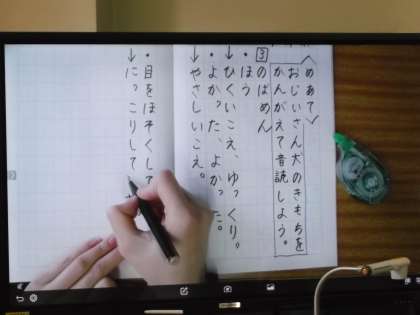 めあて
おじいさん犬のきもちを
かんがえて音読しよう。
3のばめん
・ほう
↓ひくいこえ、ゆっくり。
・よかった、よかった。
↓やさしいこえ。
・目をほそくして
↓にっこりして